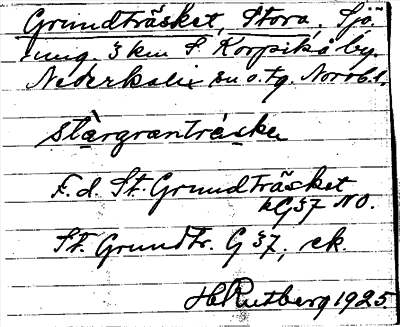 Grundträsket, Stora. Sjö
ung. 3 km S. Korpikå by.
Nederkalix sn o. tg. Norrb. l.
stàrgranträske
F. d. St. Grundträsket
kG37 NO.
St. Grundtr. G 37, ek.
H Rutberg 1925